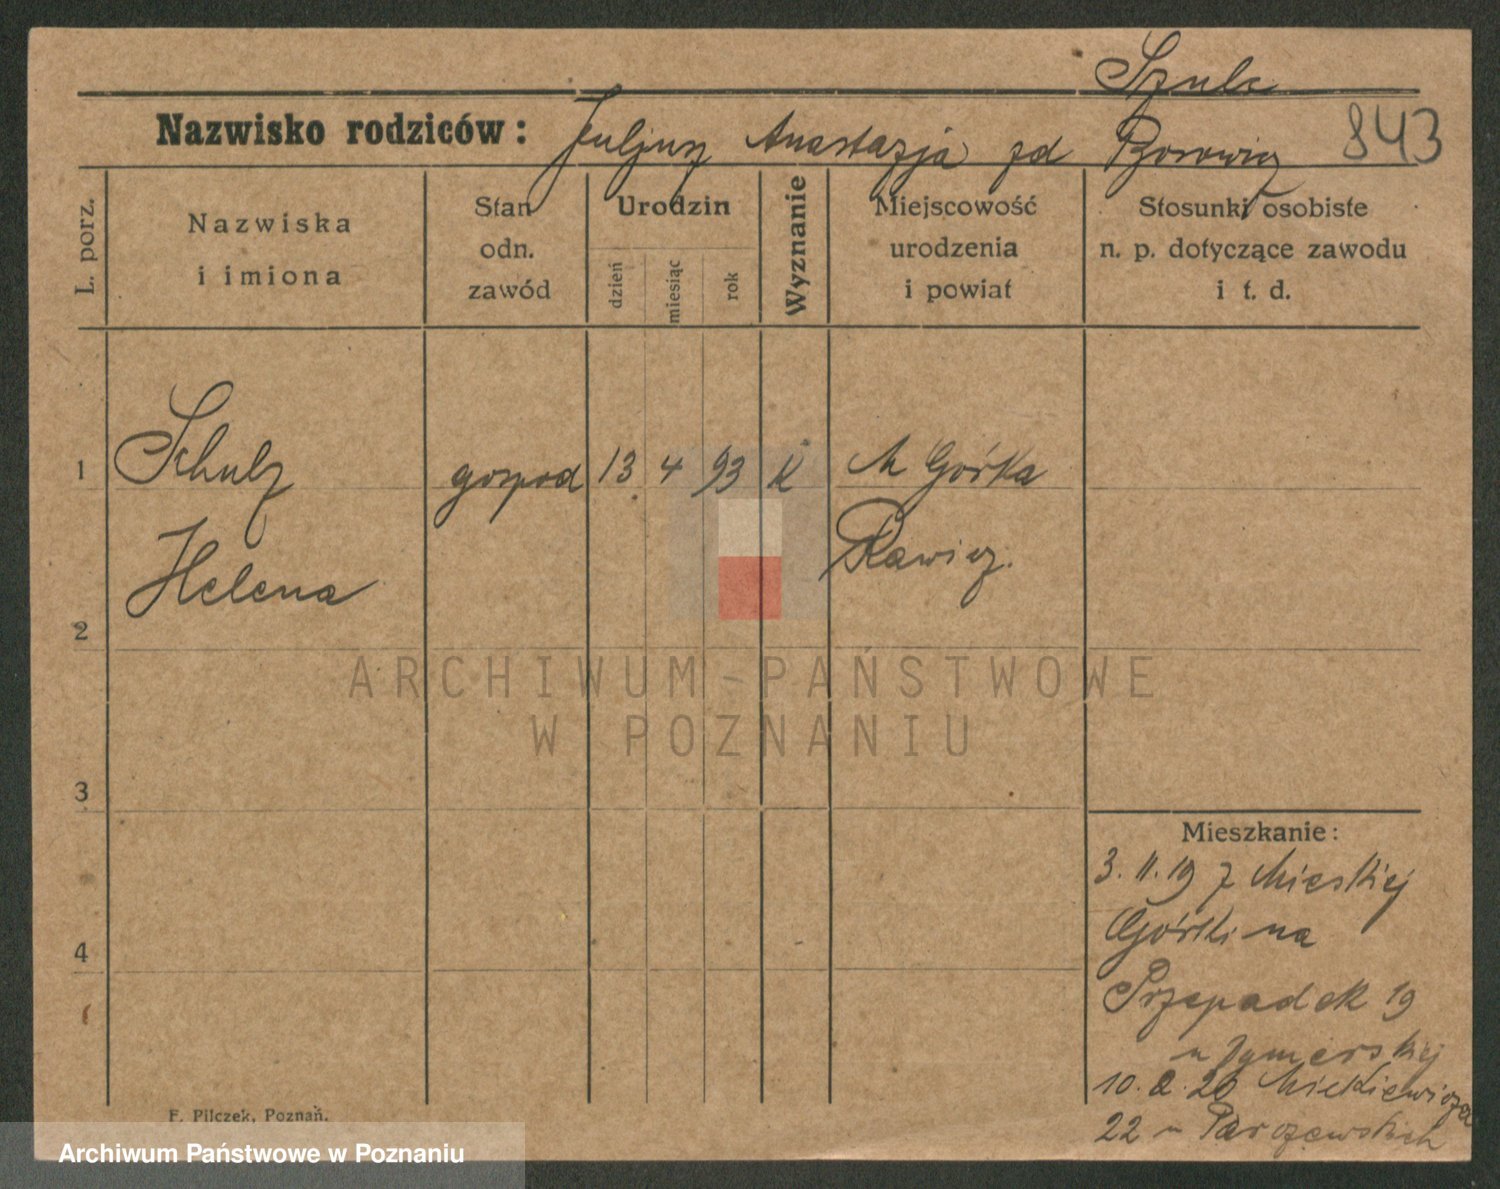 Szulc
Nazwisko rodziców: Juljusz Anastazja zd Borowicz 843
L. porz.
Nazwiska
i imiona
Stan
odn.
zawód
Urodzin
dzień
miesiąc
rok
Wyznanie
Miejscowość
urodzenia
i powiat
Stosunki osobiste
n. p. dotyczące zawodu
i t. d.
1 Schulz gospod 13 4 93 K M Górka
Helena Rawicz.
2
ARCHIWUM PAŃSTWOWE
W POZNANIU
3
Mieszkanie:
3. 11. 19 z Mieskiej
Górki na
4
Przepadek 19
u Zymerskiej
10. 2. 20 Mickiewicza
22 u Parczewskich
F. Pilczek, Poznań.
Archiwum Państwowe w Poznaniu